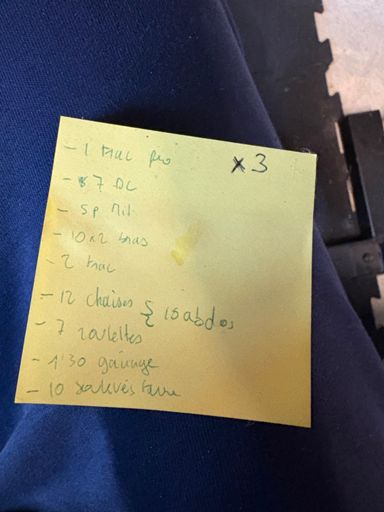 x3
- 1 trac pro
- 7 DC
- 5 p Mil.
- 10 x 2 bras
- 2 trac
- 12 chaises } 15 abdos
- 7 roulettes
- 1'30 gainage
- 10 soulevés terre